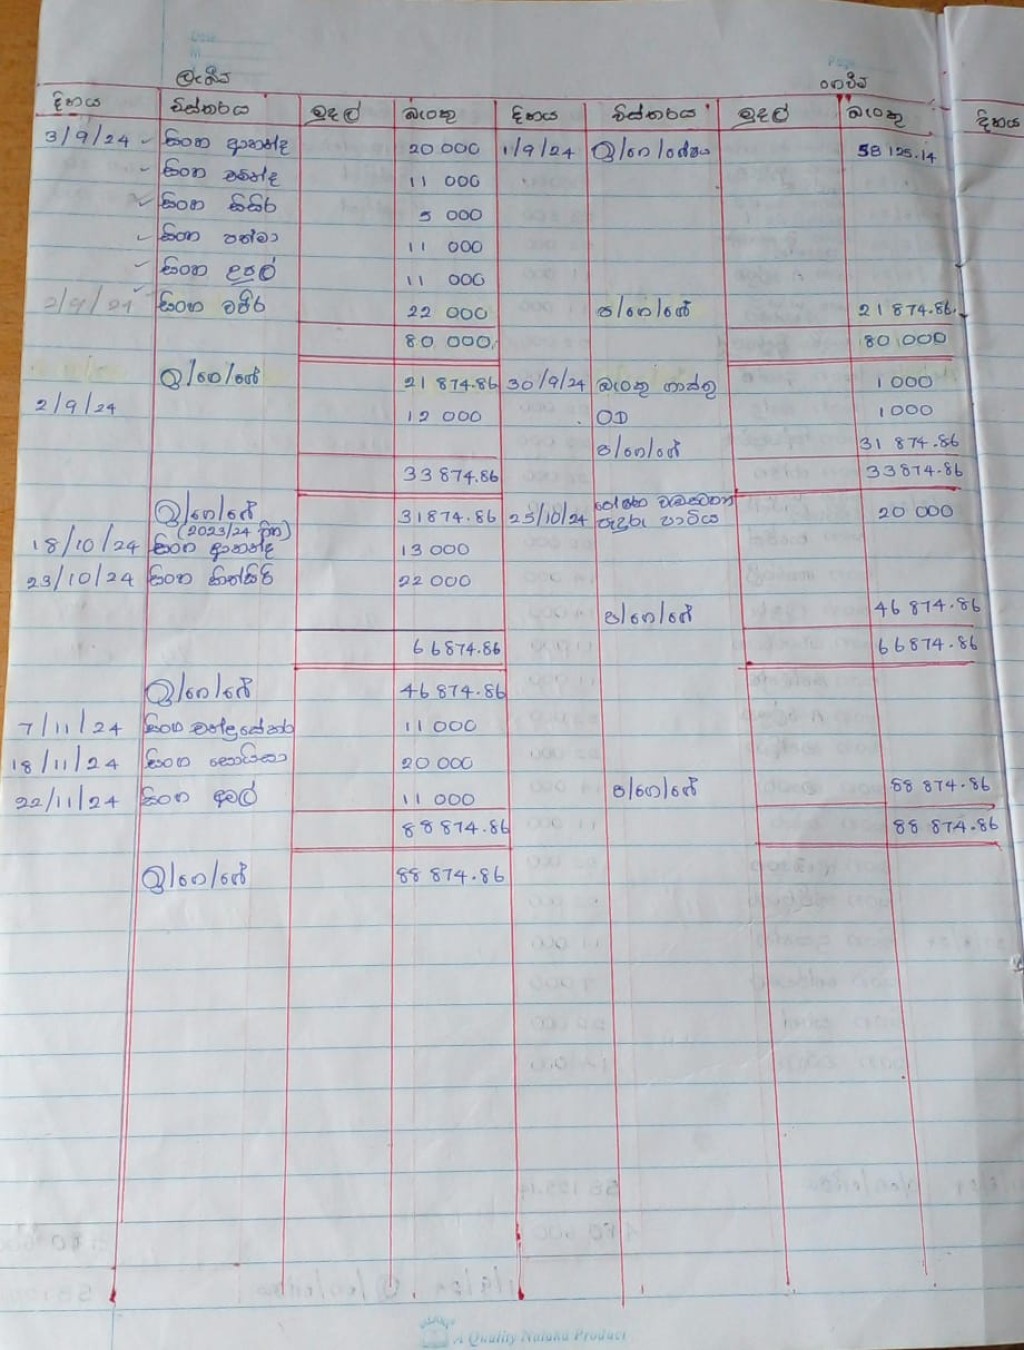 ලැබීම්
ගෙවීම්
දිනය විස්තරය මුදල් බැංකු දිනය විස්තරය මුදල් බැංකු දිනය
3/9/24 සිංහ ආනන්ද 20 000 1/9/24 ඉ/ගෙ/ශේෂය 58 125.14
සිංහ 11 000
සිංහ සිසිර 5 000
සිංහ පත්මා 11 000
සිංහ උපුල් 11 000
2/9/24 සිංහ චමීර 22 000 ප/ගෙ/ශේ 21 874.86
80 000 80 000
ඉ/ගෙ/ශේ 21 874.86 30/9/24 බැංකු ගාස්තු 1 000
2/9/24 12 000 OD 1 000
ප/ගෙ/ශේ 31 874.86
33 874.86 33 874.86
ඉ/ගෙ/ශේ 31 874.86 25/10/24 20 000
(2023/24 හිඟ) පැදුරු පාටිය
18/10/24 සිංහ ආනන්ද 13 000
23/10/24 සිංහ 22 000
ප/ගෙ/ශේ 46 874.86
66 874.86 66 874.86
ඉ/ගෙ/ශේ 46 874.86
7/11/24 සිංහ චන්ද්‍රසේකර 11 000
18/11/24 සිංහ 20 000
22/11/24 සිංහ අමල් 11 000 ප/ගෙ/ශේ 88 874.86
88 874.86 88 874.86
ඉ/ගෙ/ශේ 88 874.86
A Quality Nataka Product